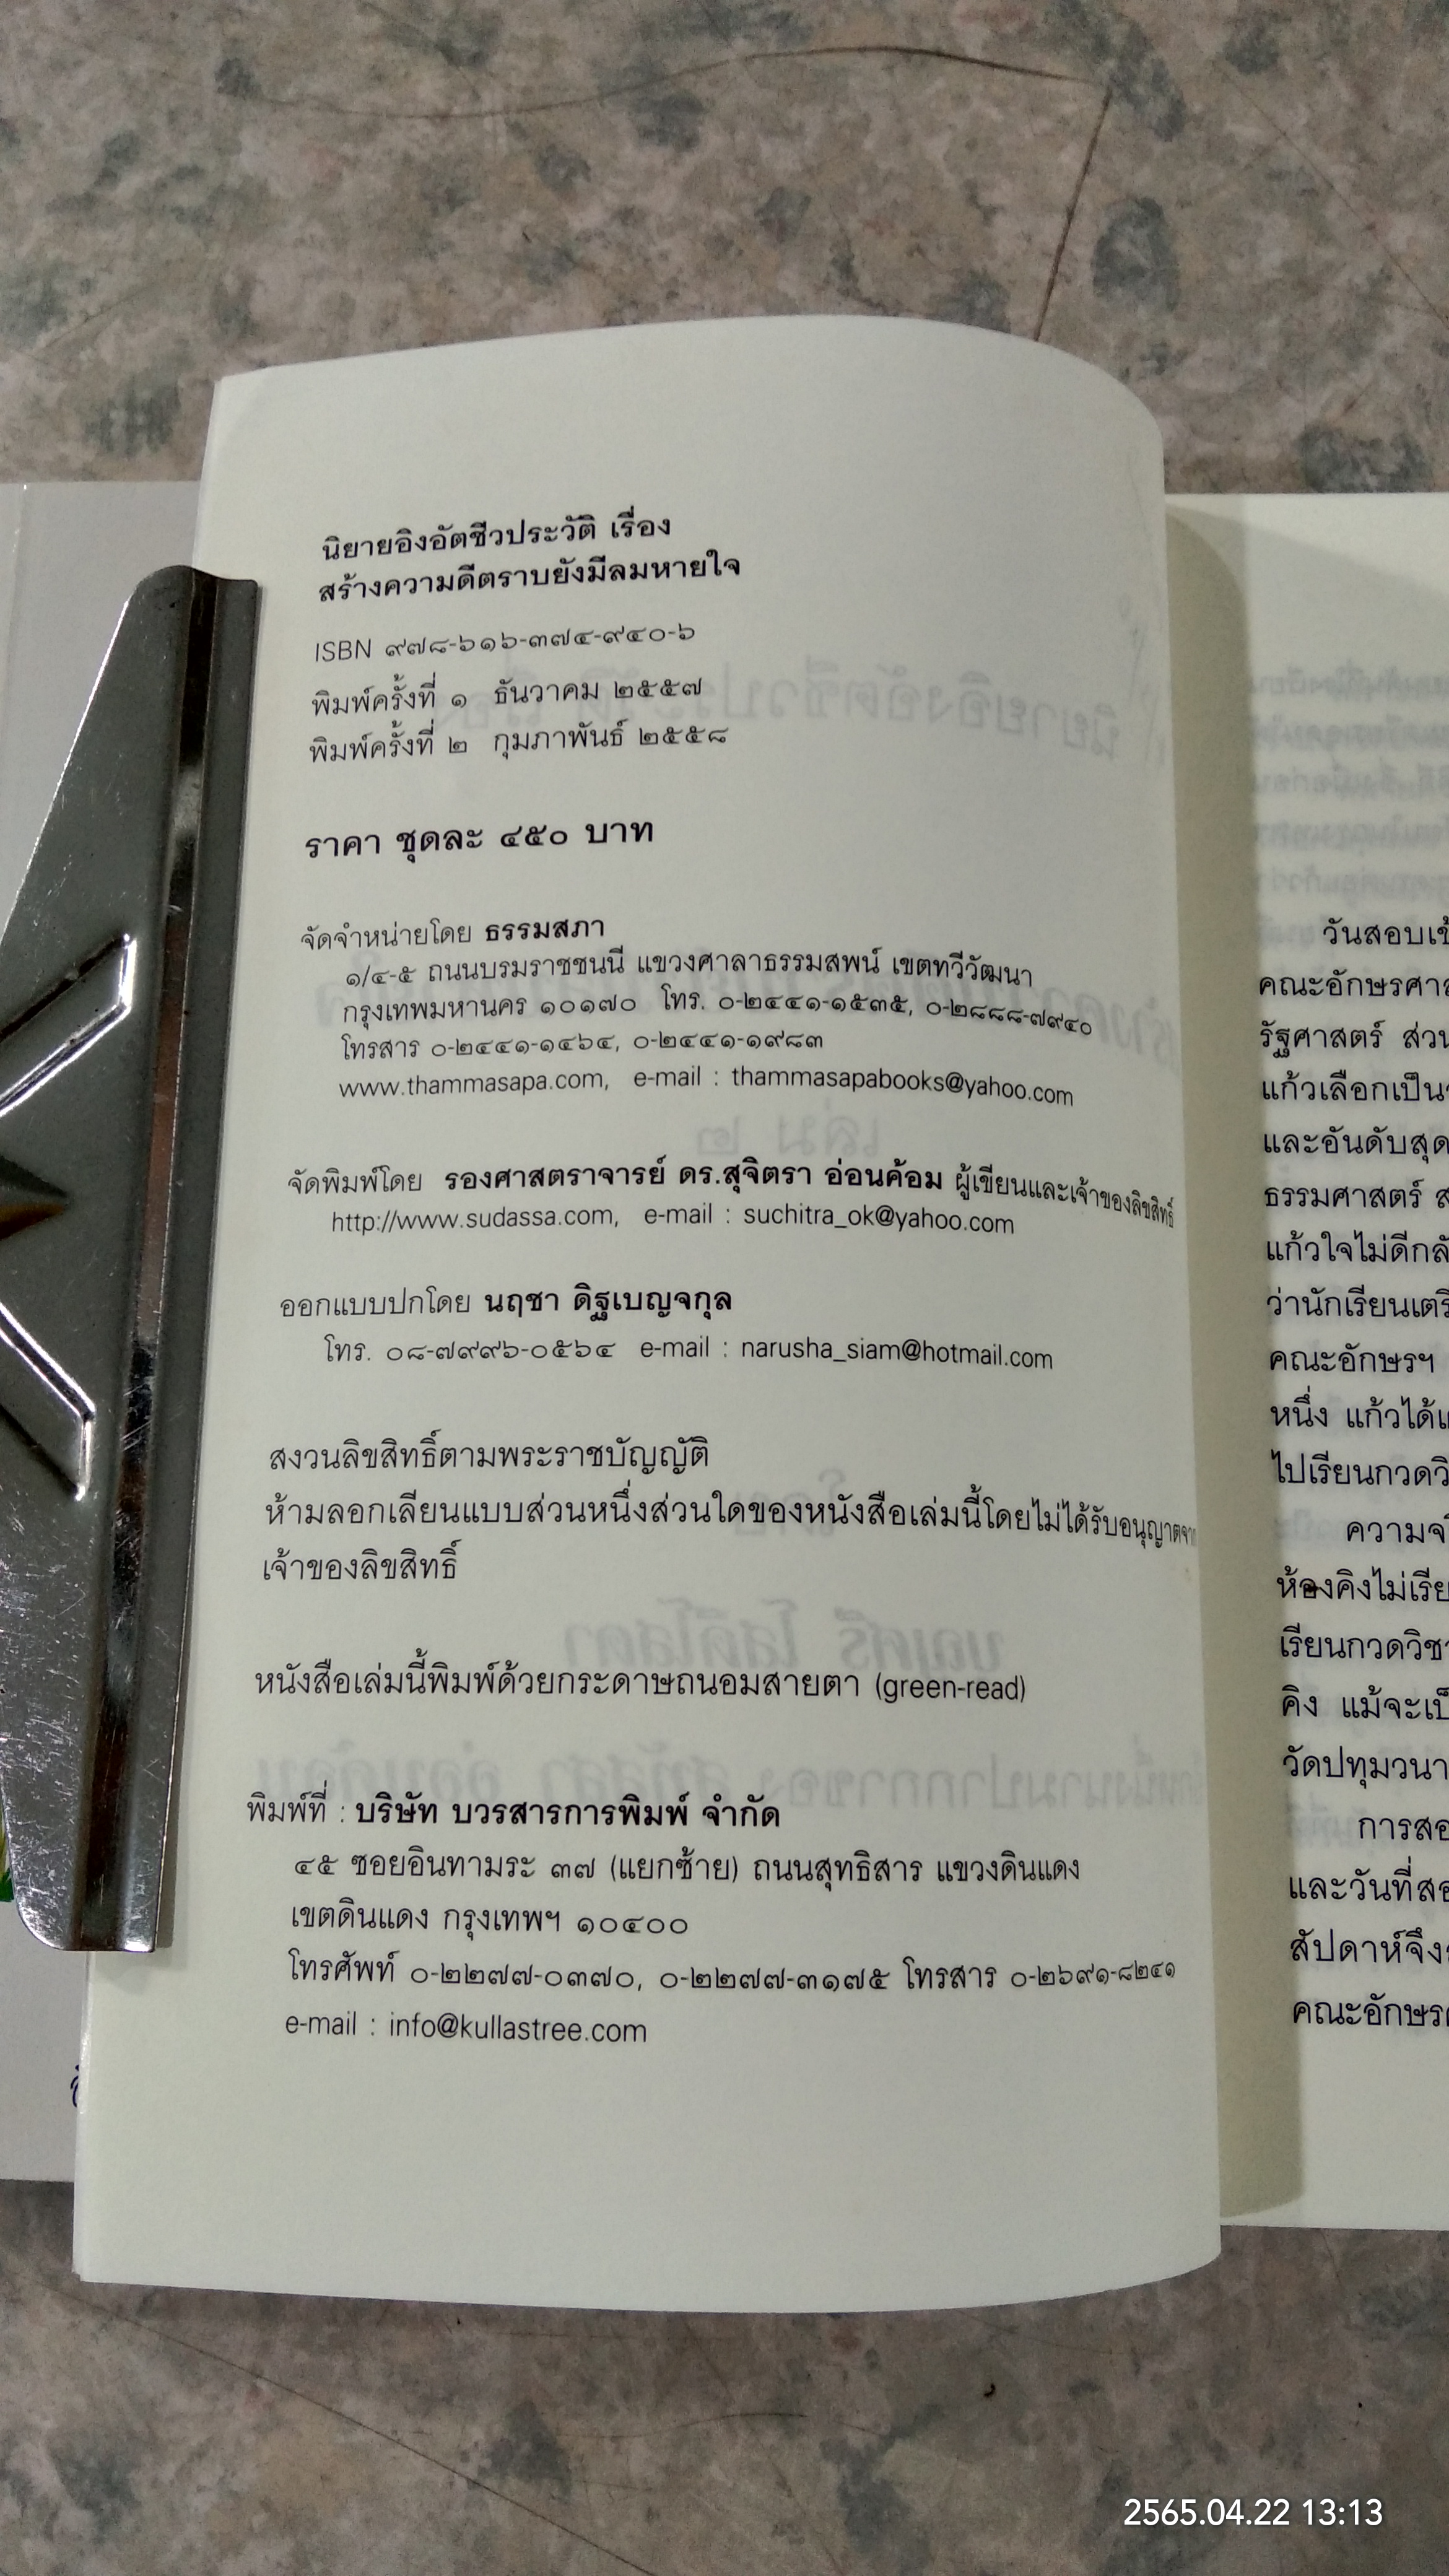 นิยายอิงอัตชีวประวัติ เรื่อง
สร้างความดีตราบยังมีลมหายใจ
ISBN ๙๗๘-๖๑๖-๓๗๔-๙๔๐-๖
พิมพ์ครั้งที่ ๑ ธันวาคม ๒๕๕๗
พิมพ์ครั้งที่ ๒ กุมภาพันธ์ ๒๕๕๘
ราคา ชุดละ ๔๕๐ บาท
จัดจำหน่ายโดย ธรรมสภา
๑/๔-๕ ถนนบรมราชชนนี แขวงศาลาธรรมสพน์ เขตทวีวัฒนา
กรุงเทพมหานคร ๑๐๑๗๐ โทร. ๐-๒๔๔๑-๑๕๓๕, ๐-๒๘๘๘-๗๙๔๐
โทรสาร ๐-๒๔๔๑-๑๔๖๔, ๐-๒๔๔๑-๑๙๘๓
www.thammasapa.com, e-mail : thammasapabooks@yahoo.com
จัดพิมพ์โดย รองศาสตราจารย์ ดร.สุจิตรา อ่อนค้อม ผู้เขียนและเจ้าของลิขสิทธิ์
http://www.sudassa.com, e-mail : suchitra_ok@yahoo.com
ออกแบบปกโดย นฤชา ดิฐเบญจกุล
โทร. ๐๘-๗๙๙๖-๐๕๖๔ e-mail : narusha_siam@hotmail.com
สงวนลิขสิทธิ์ตามพระราชบัญญัติ
ห้ามลอกเลียนแบบส่วนหนึ่งส่วนใดของหนังสือเล่มนี้โดยไม่ได้รับอนุญาตจาก
เจ้าของลิขสิทธิ์
หนังสือเล่มนี้พิมพ์ด้วยกระดาษถนอมสายตา (green-read)
พิมพ์ที่ : บริษัท บวรสารการพิมพ์ จำกัด
๔๕ ซอยอินทามระ ๓๗ (แยกซ้าย) ถนนสุทธิสาร แขวงดินแดง
เขตดินแดง กรุงเทพฯ ๑๐๔๐๐
โทรศัพท์ ๐-๒๒๗๗-๐๓๗๐, ๐-๒๒๗๗-๓๑๗๕ โทรสาร ๐-๒๖๙๑-๘๒๔๑
e-mail : info@kullastree.com
วันสอบเข้
คณะอักษรศาส
รัฐศาสตร์ ส่วน
แก้วเลือกเป็น
และอันดับสุด
ธรรมศาสตร์ ส
แก้วใจไม่ดีกลั
ว่านักเรียนเตรี
คณะอักษรฯ
หนึ่ง แก้วได้แ
ไปเรียนกวดวิ
ความจ
ห้องคิงไม่เรีย
เรียนกวดวิชา
คิง แม้จะเป็
วัดปทุมวนา
การสอ
และวันที่สอ
สัปดาห์จึง
คณะอักษร
2565.04.22 13:13